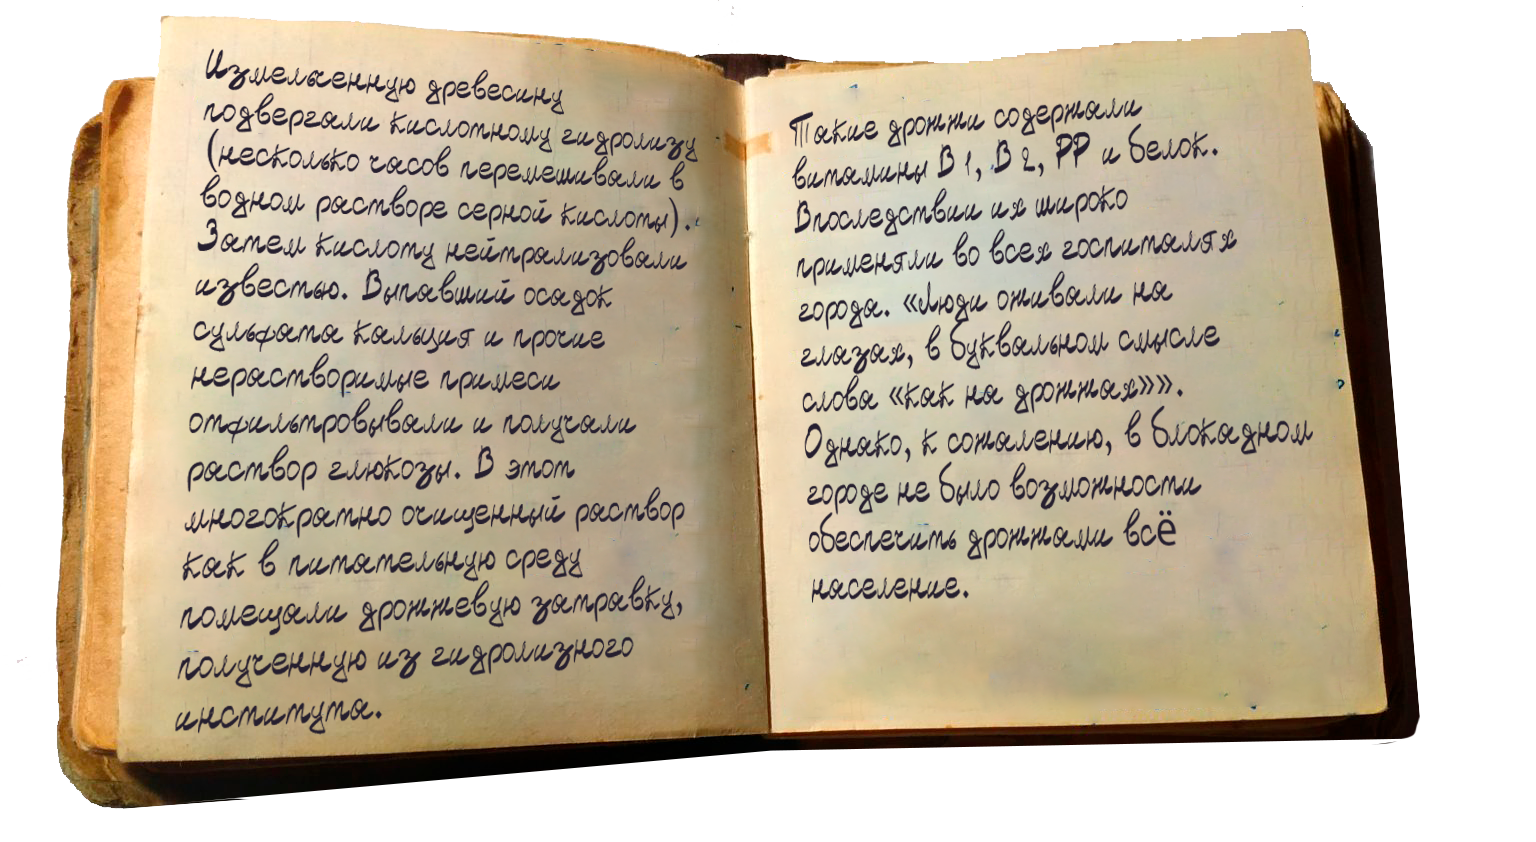 Измельченную древесину
подвергали кислотному гидролизу
(несколько часов перемешивали в
водном растворе серной кислоты).
Затем кислоту нейтрализовали
известью. Выпавший осадок
сульфата кальция и прочие
нерастворимые примеси
отфильтровывали и получали
раствор глюкозы. В этот
многократно очищенный раствор
как в питательную среду
помещали дрожжевую затравку,
полученную из гидролизного
института.
Такие дрожжи содержали
витамины В 1, В 2, РР и белок.
Впоследствии их широко
применяли во всех госпиталях
города. «Люди оживали на
глазах, в буквальном смысле
слова «как на дрожжах»».
Однако, к сожалению, в блокадном
городе не было возможности
обеспечить дрожжами всё
население.